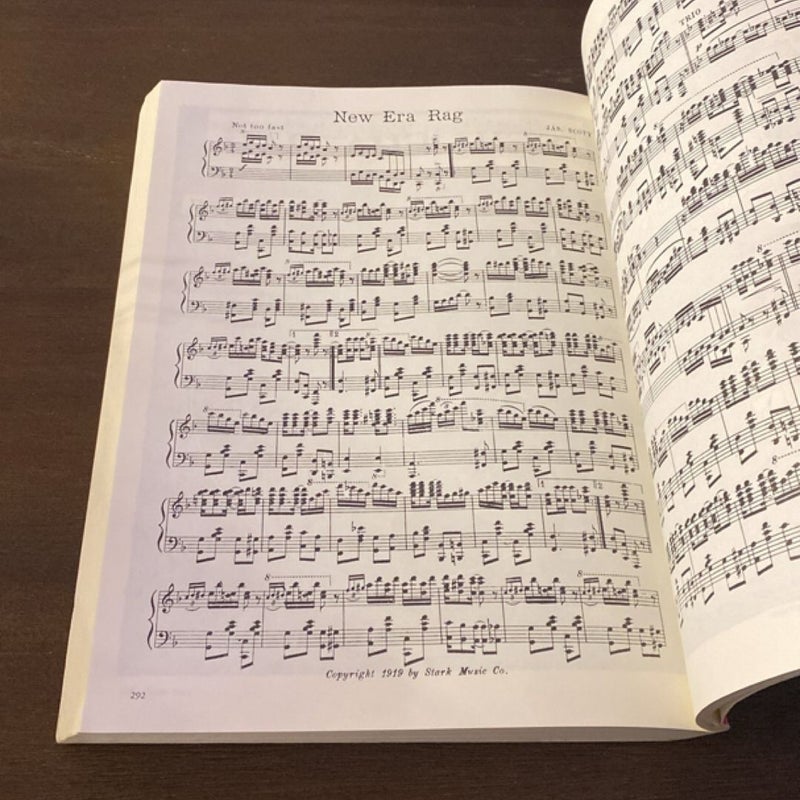 New Era Rag
Not too fast
JAS. SCOTT
TRIO
Copyright 1919 by Stark Music Co.
292